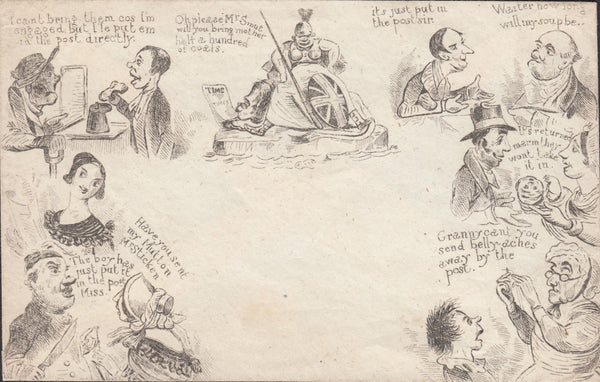 I cant bring them cos I'm
engaged But I'le put em
in the post directly.
Oh please Mr Smut
will you bring mother
half a hundred
of coals.
TIME
its just put in
the post sir.
Waiter how long
will my soup be..
It's returned
marm ther
wont take
it in.
Have you sent
my Mutton
Mr Sticken
The boy has
just put it
in the post
Miss.
Granny cant you
send belly-aches
away by the
post.